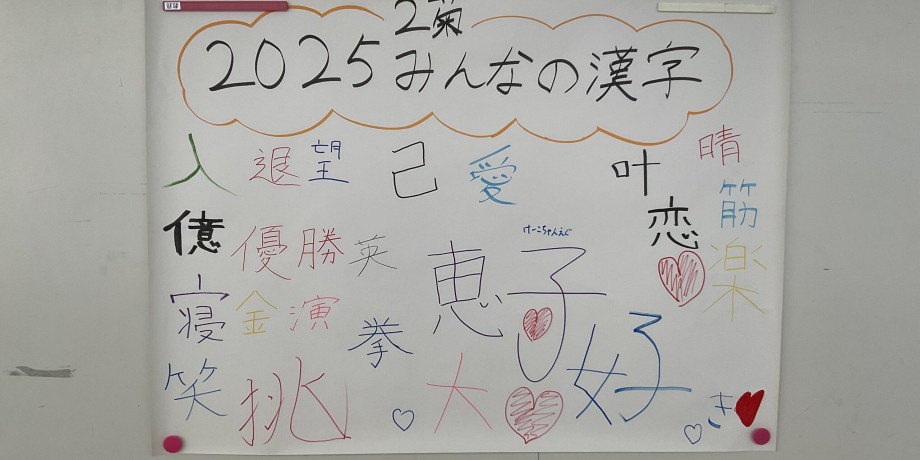 2菊
2025 みんなの漢字
入 退 望 己 愛 叶 晴
億 優勝 英 恋 筋
けーこちゃんえぐ
恵子
寝 金 演 拳 楽
笑 挑 大 好き